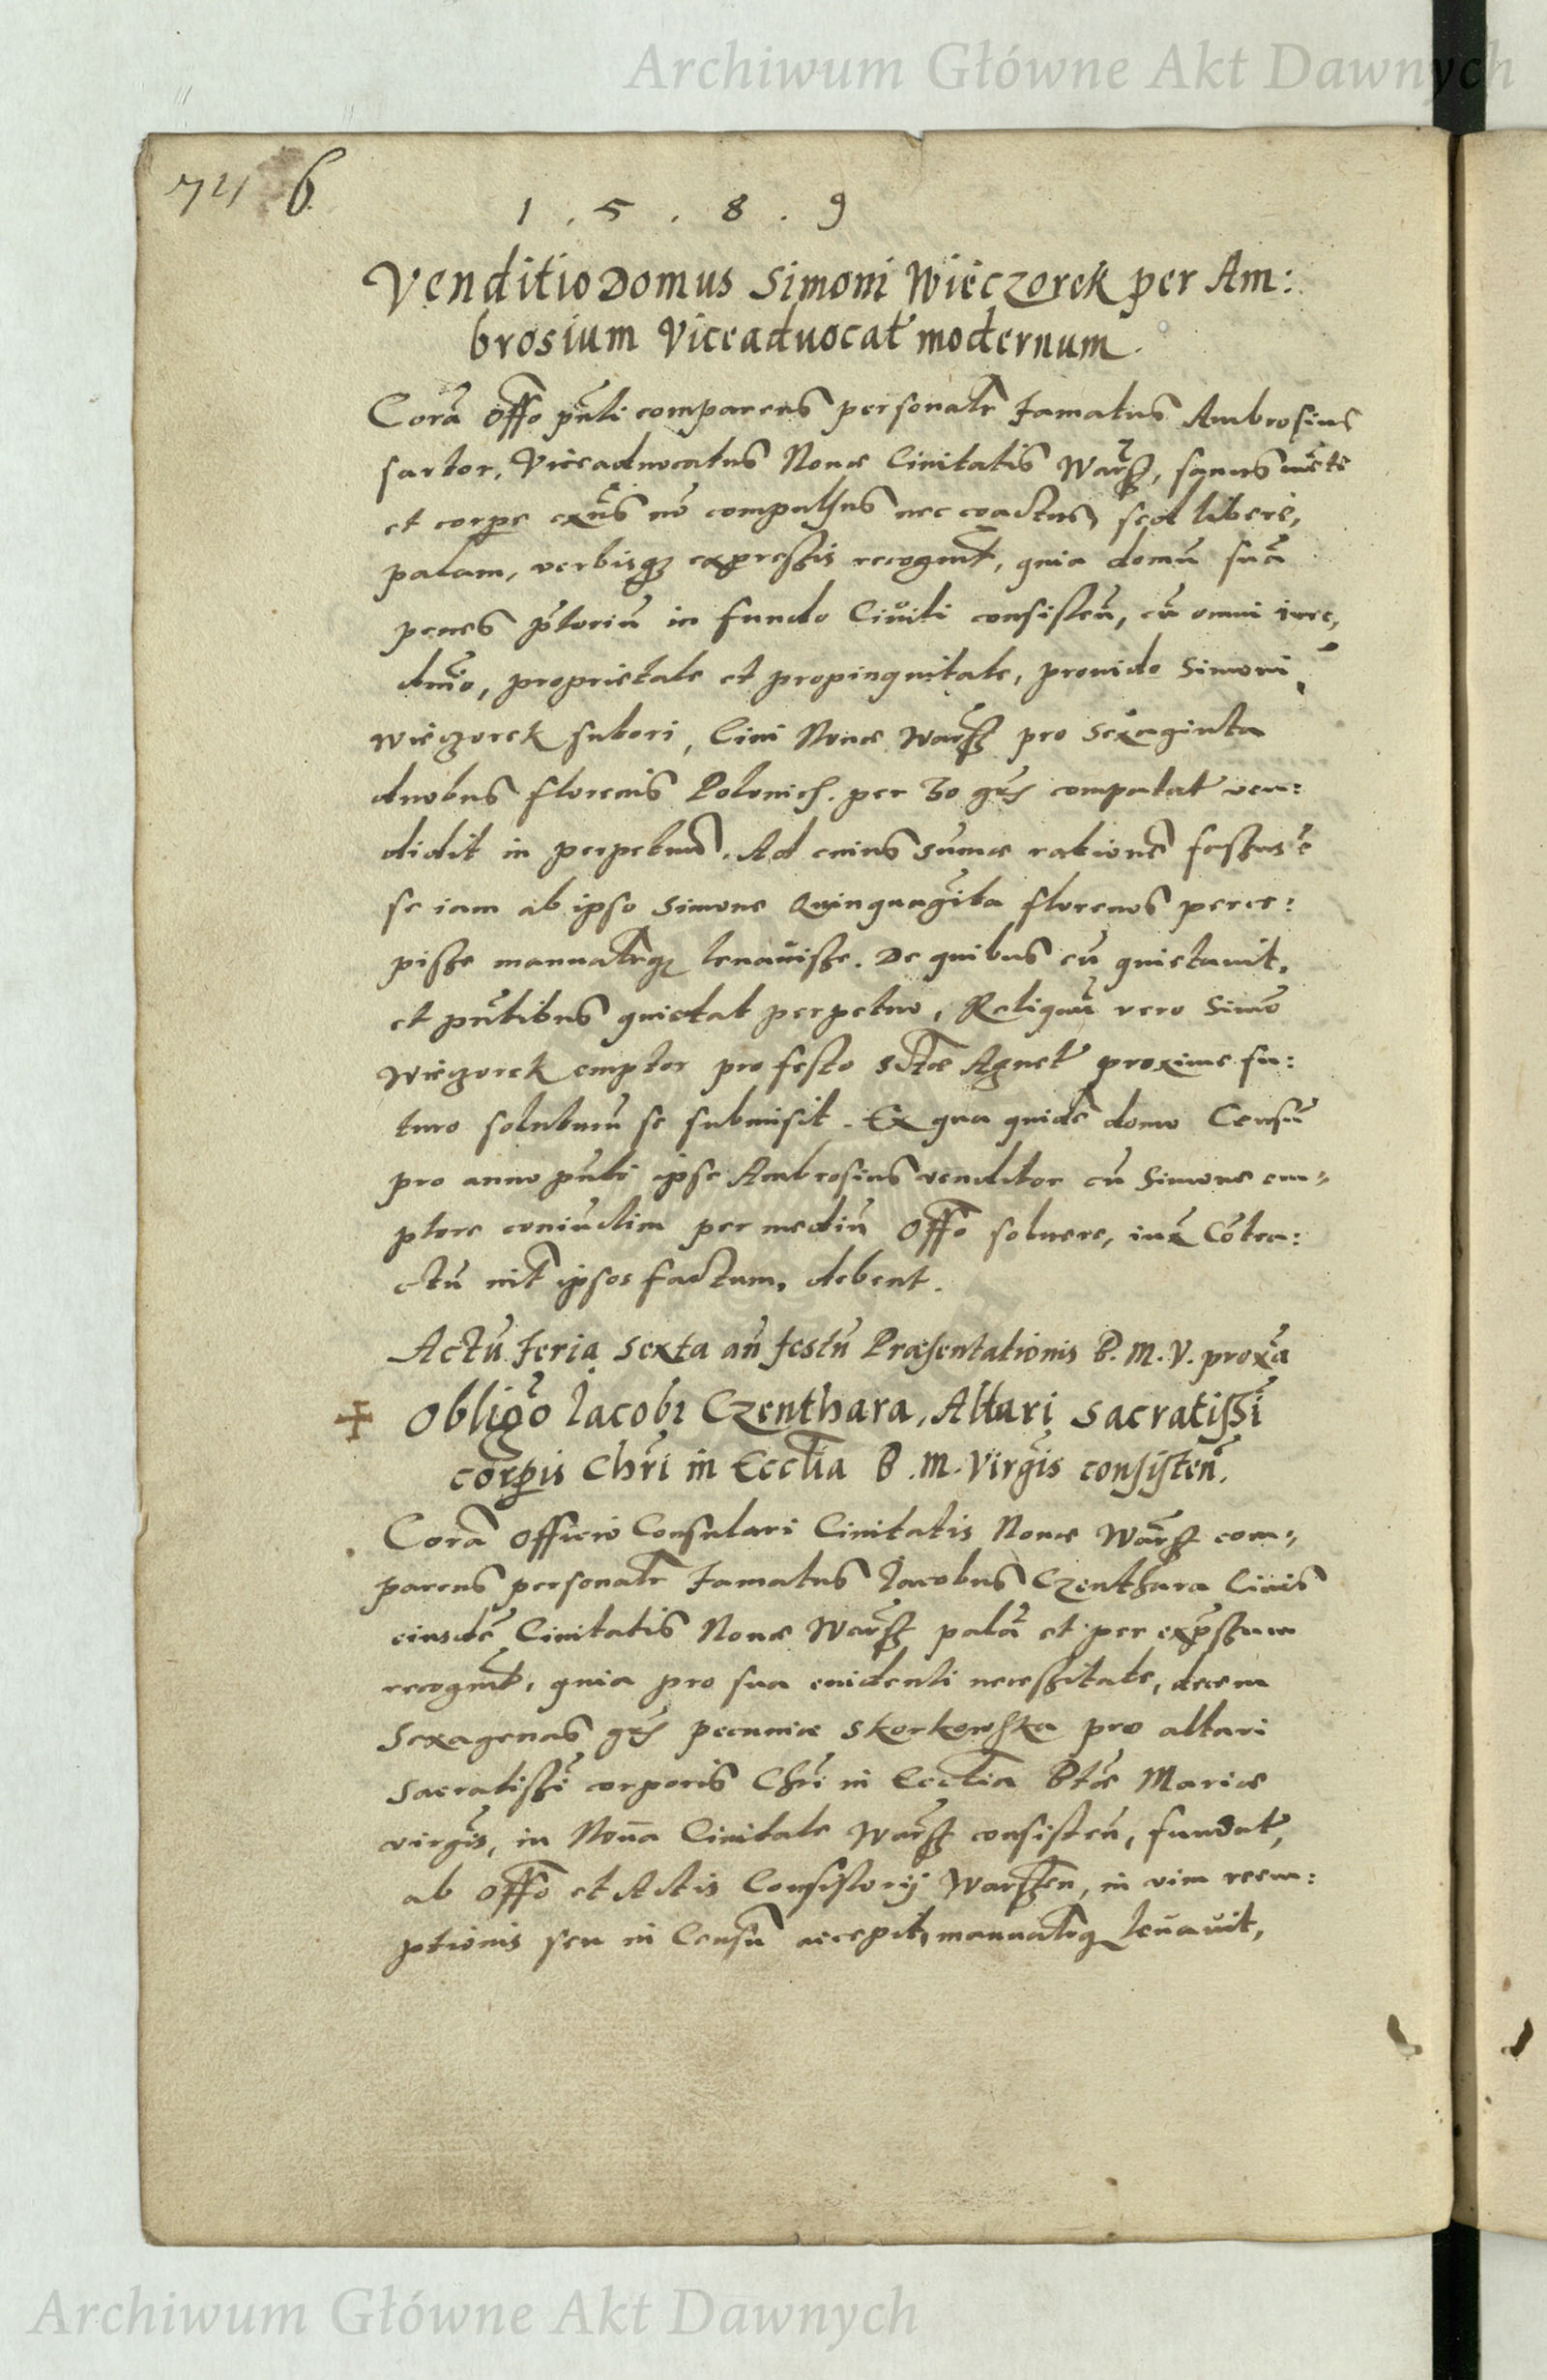 Archiwum Główne Akt Dawnych
74 b.
1 . 5 . 8 . 9
Venditio Domus Simoni Wieczorek per Am:
brosium Viceaduocat modernum.
Corã Offo pñti comparens personalr Famatus Ambrosius
sartor, Viceaduocatus Nouæ Ciuitatis Warß, sanus mẽte
et corpe exñs nõ compulsus nec coactus, sed libere,
palam, verbisq; expreßis recognit, quia domũ suã
penes ptoriũ in fundo Ciuili consisteñ, cũ omni iure,
dnio, proprietate et propinquitate, prouido Simoni
Wieczorek sutori, Ciui Nouæ Warß pro Sexaginta
duobus florenis Polonich. per 30 grs computat ven:
didit in perpetuũ. Ad cuius sumæ rationẽ faßus ẽ
se iam ab ipso Simone Quinquagĩta florenos perce:
piße manualrq; leuauiße. De quibus eũ quietauit,
et pñtibus quietat perpetuo, Reliquũ vero Simõ
Wieczorek emptor pro festo Sctæ Agnet proxime fu:
turo soluturũ se submisit. Ex qua quidẽ domo Censũ
pro anno pñti ipse Ambrosius venditor cũ Simone em-
ptore coniũctim per mediũ Offo soluere, iux Cõtra:
ctũ int ipsos factum, debent.
Actũ Feria Sexta añ festũ Præsentationis B. M. V. proxã
Obligõ Jacobi Czenthara, Altari Sacratißi
corpis Chri in Ecclia B. M. Virgis consisteñ.
Corã Officio Consulari Ciuitatis Nouæ Warß com-
parens personalr Famatus Jacobus Czenthara Ciuis
eiusdẽ Ciuitatis Nouæ Warß palã et per expßum
recognit, quia pro sua euidenti neceßitate, decem
Sexagenas grs pecuniæ Skorkowska pro altari
Sacratißi corporis Chri in Ecclia Btæ Mariæ
virgis, in Noua Ciuitate Warß consisteñ, fundat,
ab Offo et Actis Consistorij Warßen, in vim reem:
ptionis seu in Censũ accepit, manualrq; leuauit,
Archiwum Główne Akt Dawnych